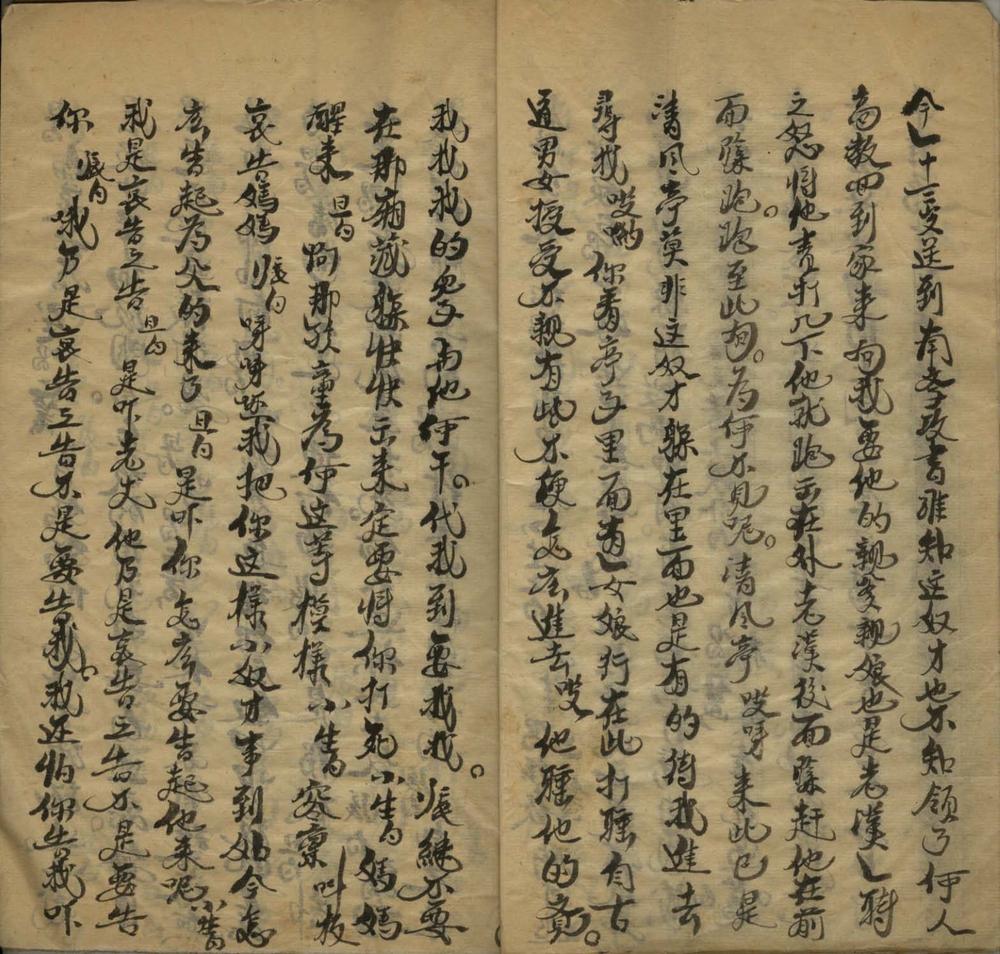 今乚十三受送到南学攻書誰知这奴才也不知領了何人
高教回到家来向我要他的親爹親娘也是老漢乚時
之怒将他責打几下他就跑出在外老漢後面躲赶他在前
面躲跑。跑至此向。為何不見呢。清风亭哎呀来此已是
清风亭莫非这奴才躲在里面也是有的待我進去
尋找哎哟你看亭子里面有乚女娘行在此打睡自古
道男女授受不親有些不便怎広進去哎他睡他的覚。
我找我的兒子与他何干。代我到要找找。張継不要
在那廂藏躲快快出来定要将你打死小生白媽媽
醒来旦白阿那孩童為何这等模樣小生白容禀叫板
哀告媽媽張白呀呀这我把你这様小奴才事到如今怎
広告起為父的来了旦白是吓你怎広要告起他来呢小生白
我是哀告之告旦白是吓老丈他乃是哀告之告不是要告
你張白哦乃是哀告之告不是要告我。我还怕你告我吓